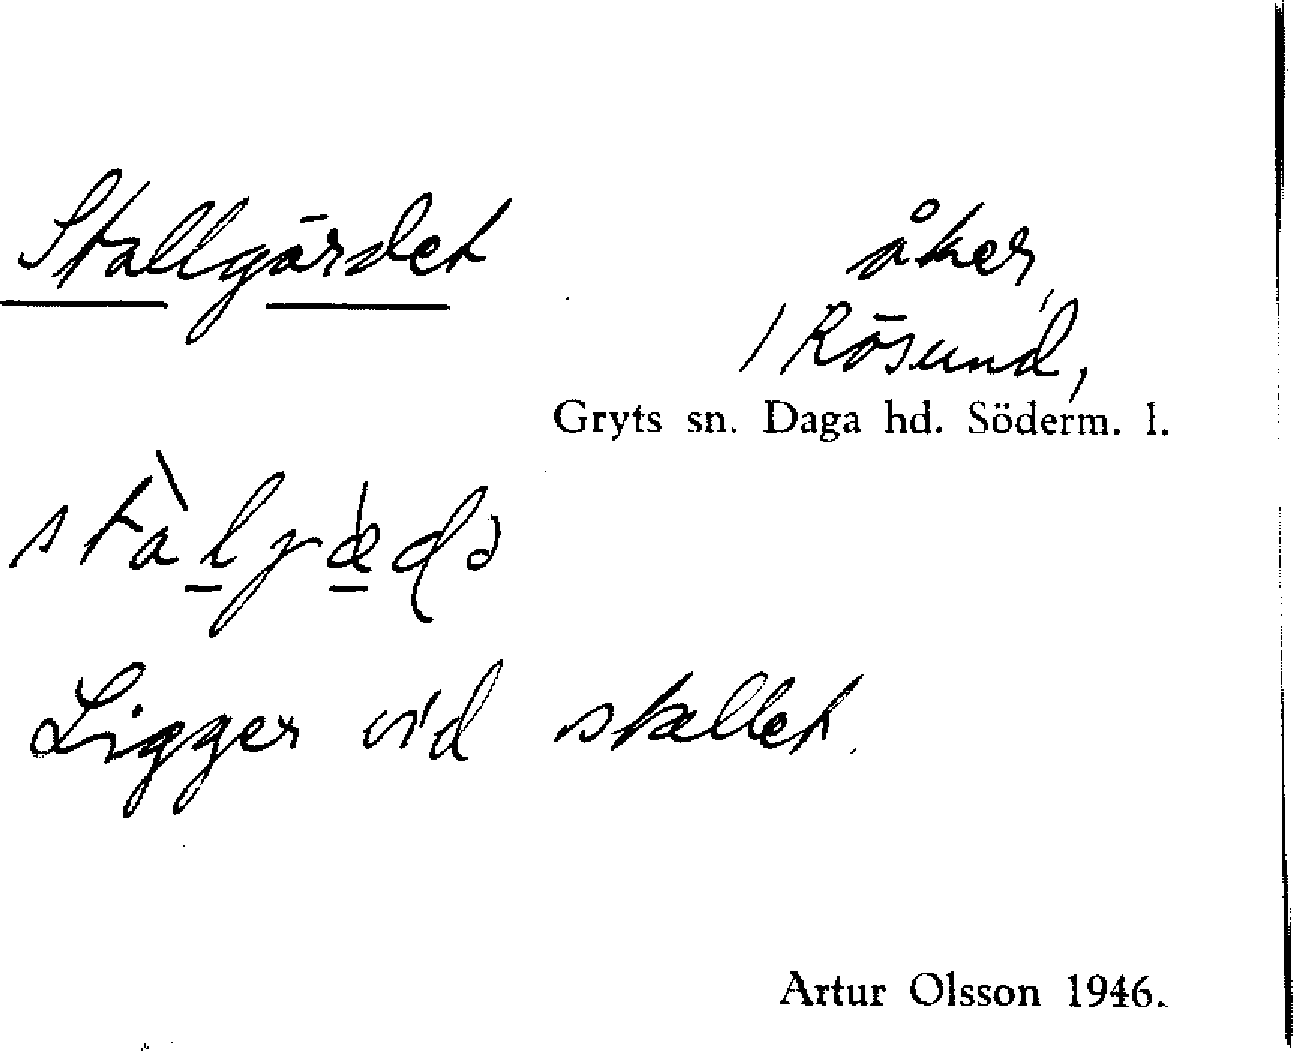 Stallgärdet åker,
1 Rösund,
Gryts sn. Daga hd. Söderm. l.
Ligger vid stallet.
Artur Olsson 1946.